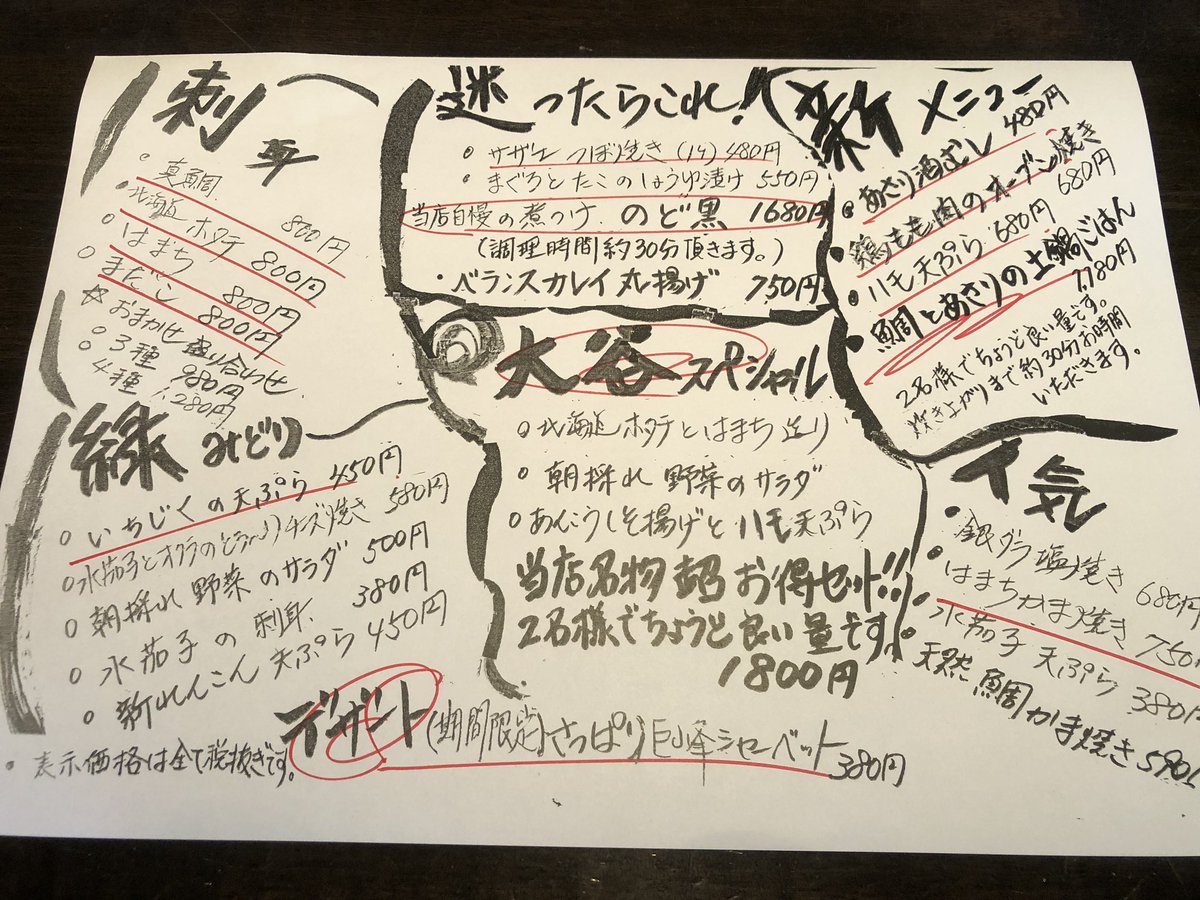 刺身
真鯛 800円
北海道ホタテ 800円
はまち 800円
まだこ 800円
☆おまかせ盛り合わせ
3種 980円
4種 1,280円
迷ったらこれ!!
サザエ つぼ焼き (1ケ) 480円
まぐろとたこのしょうゆ漬け 550円
当店自慢の煮つけ のど黒 1680円
(調理時間約30分頂きます。)
ベランスカレイ丸揚げ 750円
新メニュー
あさり酒むし 480円
鶏もも肉のオーブン焼き 680円
ハモ天ぷら 680円
鯛とあさりの土鍋ごはん 1,780円
2名様でちょうど良い量です。
炊き上がりまで約30分お時間
いただきます。
大谷スペシャル
北海道ホタテとはまち造り
朝採れ野菜のサラダ
あんこうしそ揚げとハモ天ぷら
当店名物超お得セット!!
2名様でちょうど良い量です。
1800円
緑 みどり
いちじくの天ぷら 450円
水茄子とオクラのとろ〜りチーズ焼き 580円
朝採れ野菜のサラダ 500円
水茄子の刺身 380円
新れんこん天ぷら 450円
人気
銀ダラ塩焼き 680円
はまちかま焼き 750円
水茄子天ぷら 380円
天然鯛かま焼き 590
デザート (期間限定)さっぱり巨峰シャーベット 380円
表示価格は全て税抜きです。